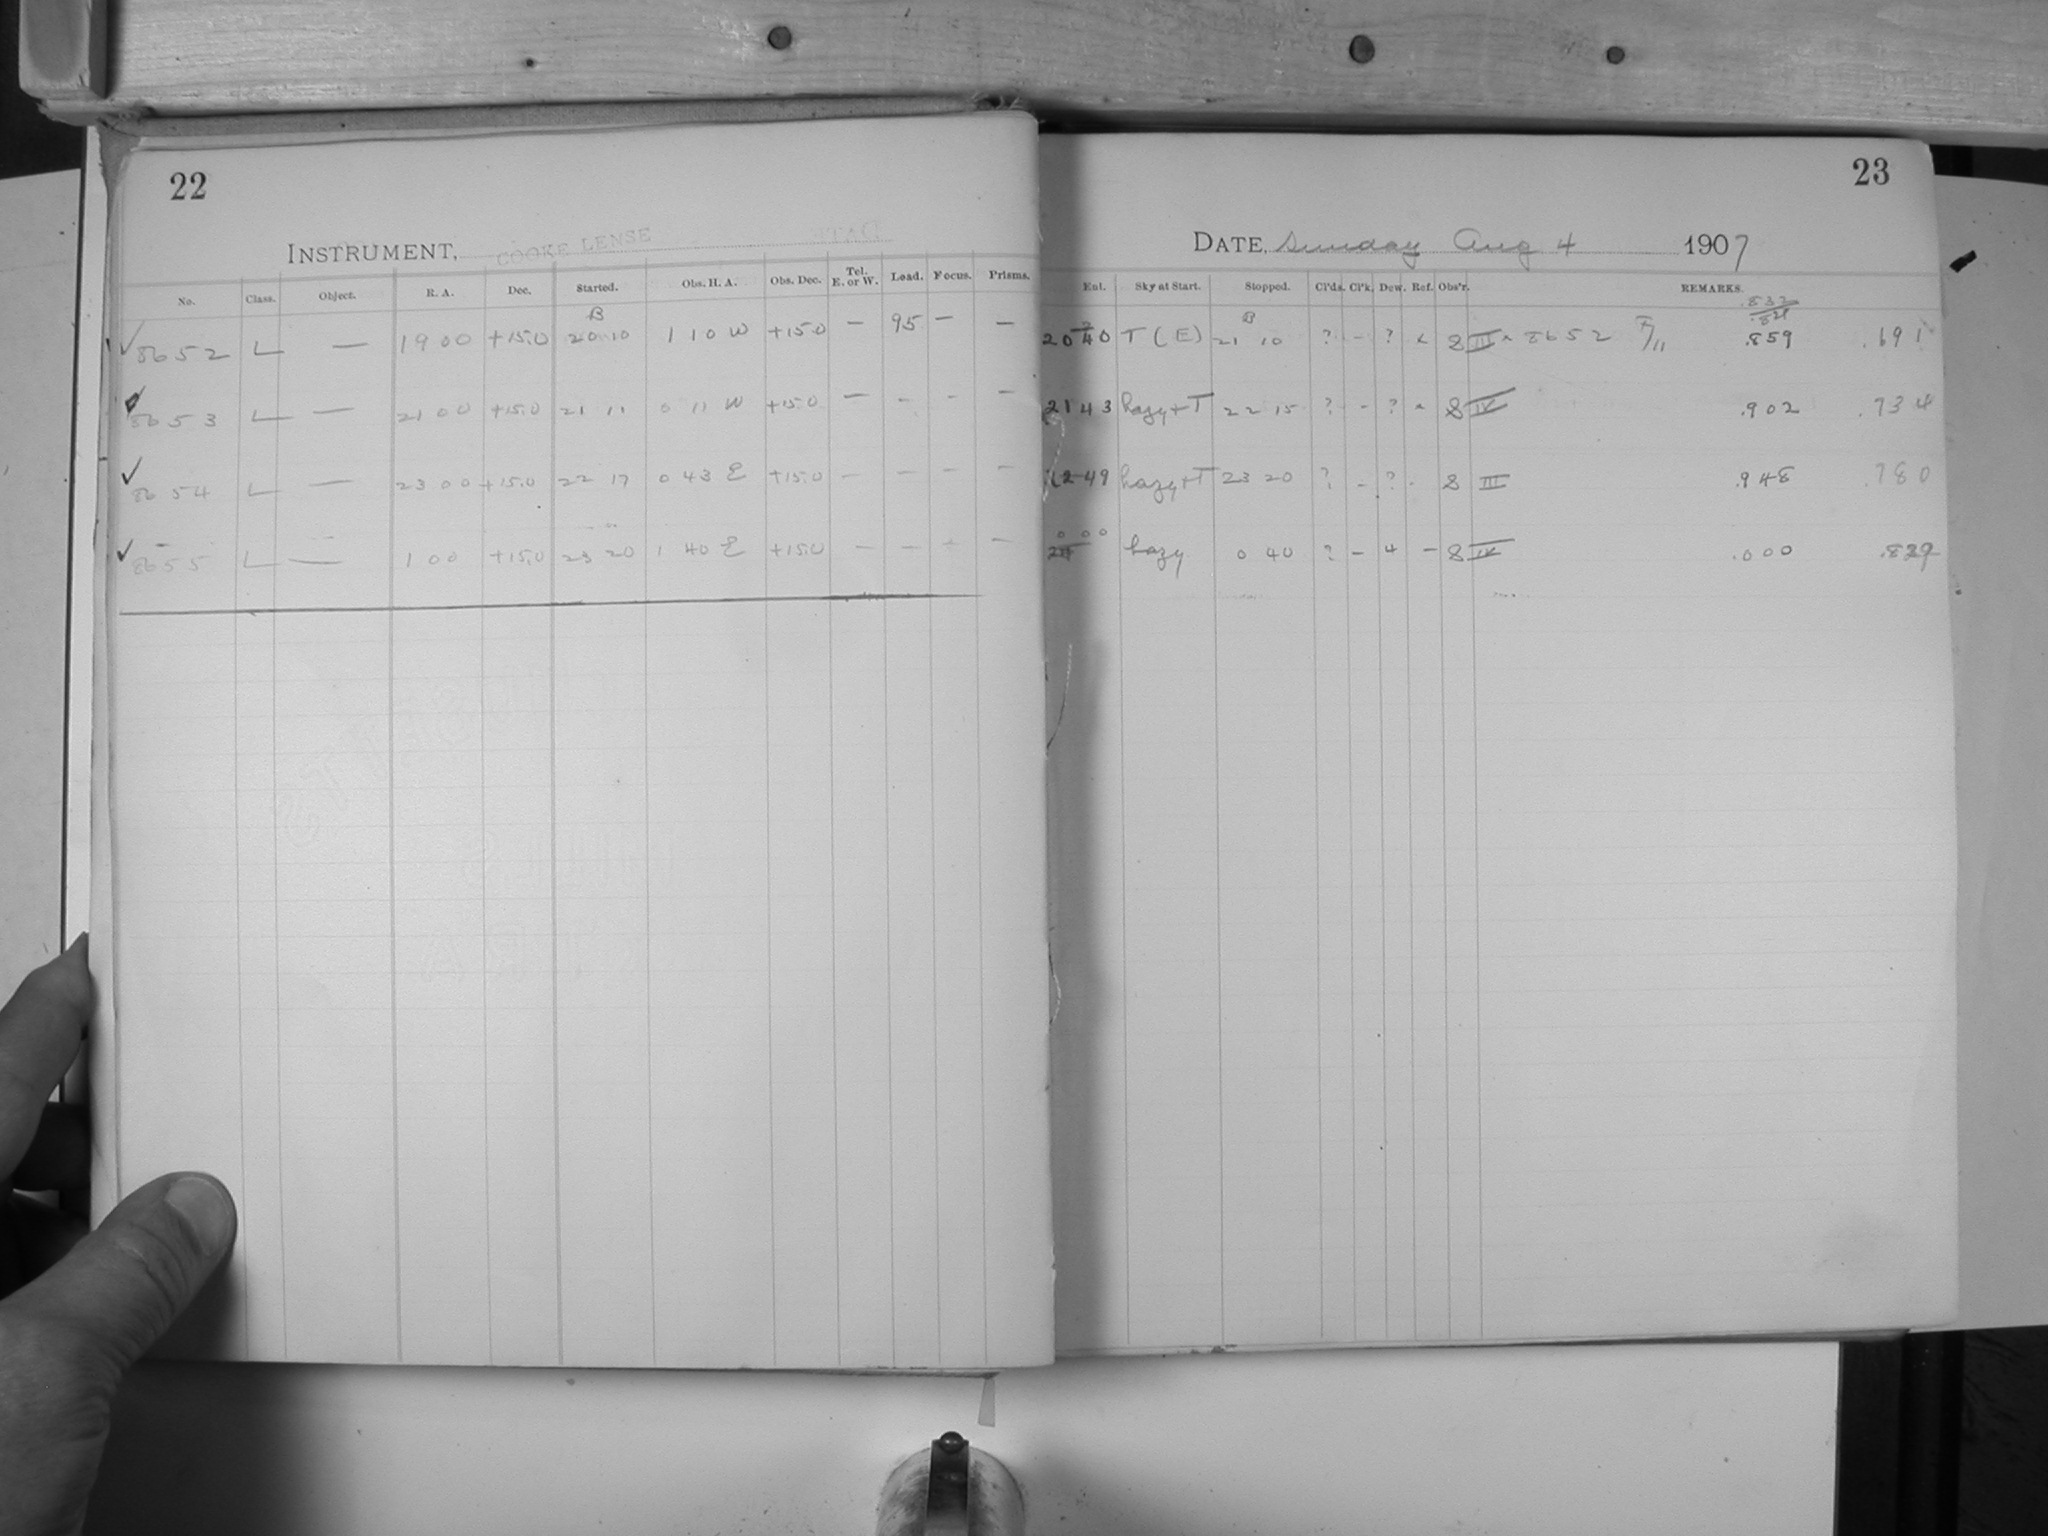 22
INSTRUMENT, COOKE LENSE
No. Class. Object. R. A. Dec. Started. Obs. H. A. Obs. Dec. Tel. E. or W. Lead. Focus. Prisms.
B
✓ 8652 L — 19 00 +15.0 20 10 1 10 W +15.0 — 95 — —
8653 L — 21 00 +15.0 21 11 0 11 W +15.0 — - - —
✓ 8654 L — 23 00 +15.0 22 17 0 43 E +15.0 — — - —
✓ 8655 L — 1 00 +15.0 23 20 1 40 E +15.0 — — - —
23
DATE, Sunday Aug 4 1907
Sky at Start. Stopped. Cl'ds. Cl'k. Dew. Ref. Obs'r. REMARKS.
.832
B
20 40 T (E) 21 10 ? - ? x S III x 8652 F/11 .859 .691
21 43 hazy + T 22 15 ? - ? x S IV .902 .734
22 49 hazy + T 23 20 ? - ? - S III .948 .780
0 00
hazy 0 40 ? - 4 - S IV .000 .829